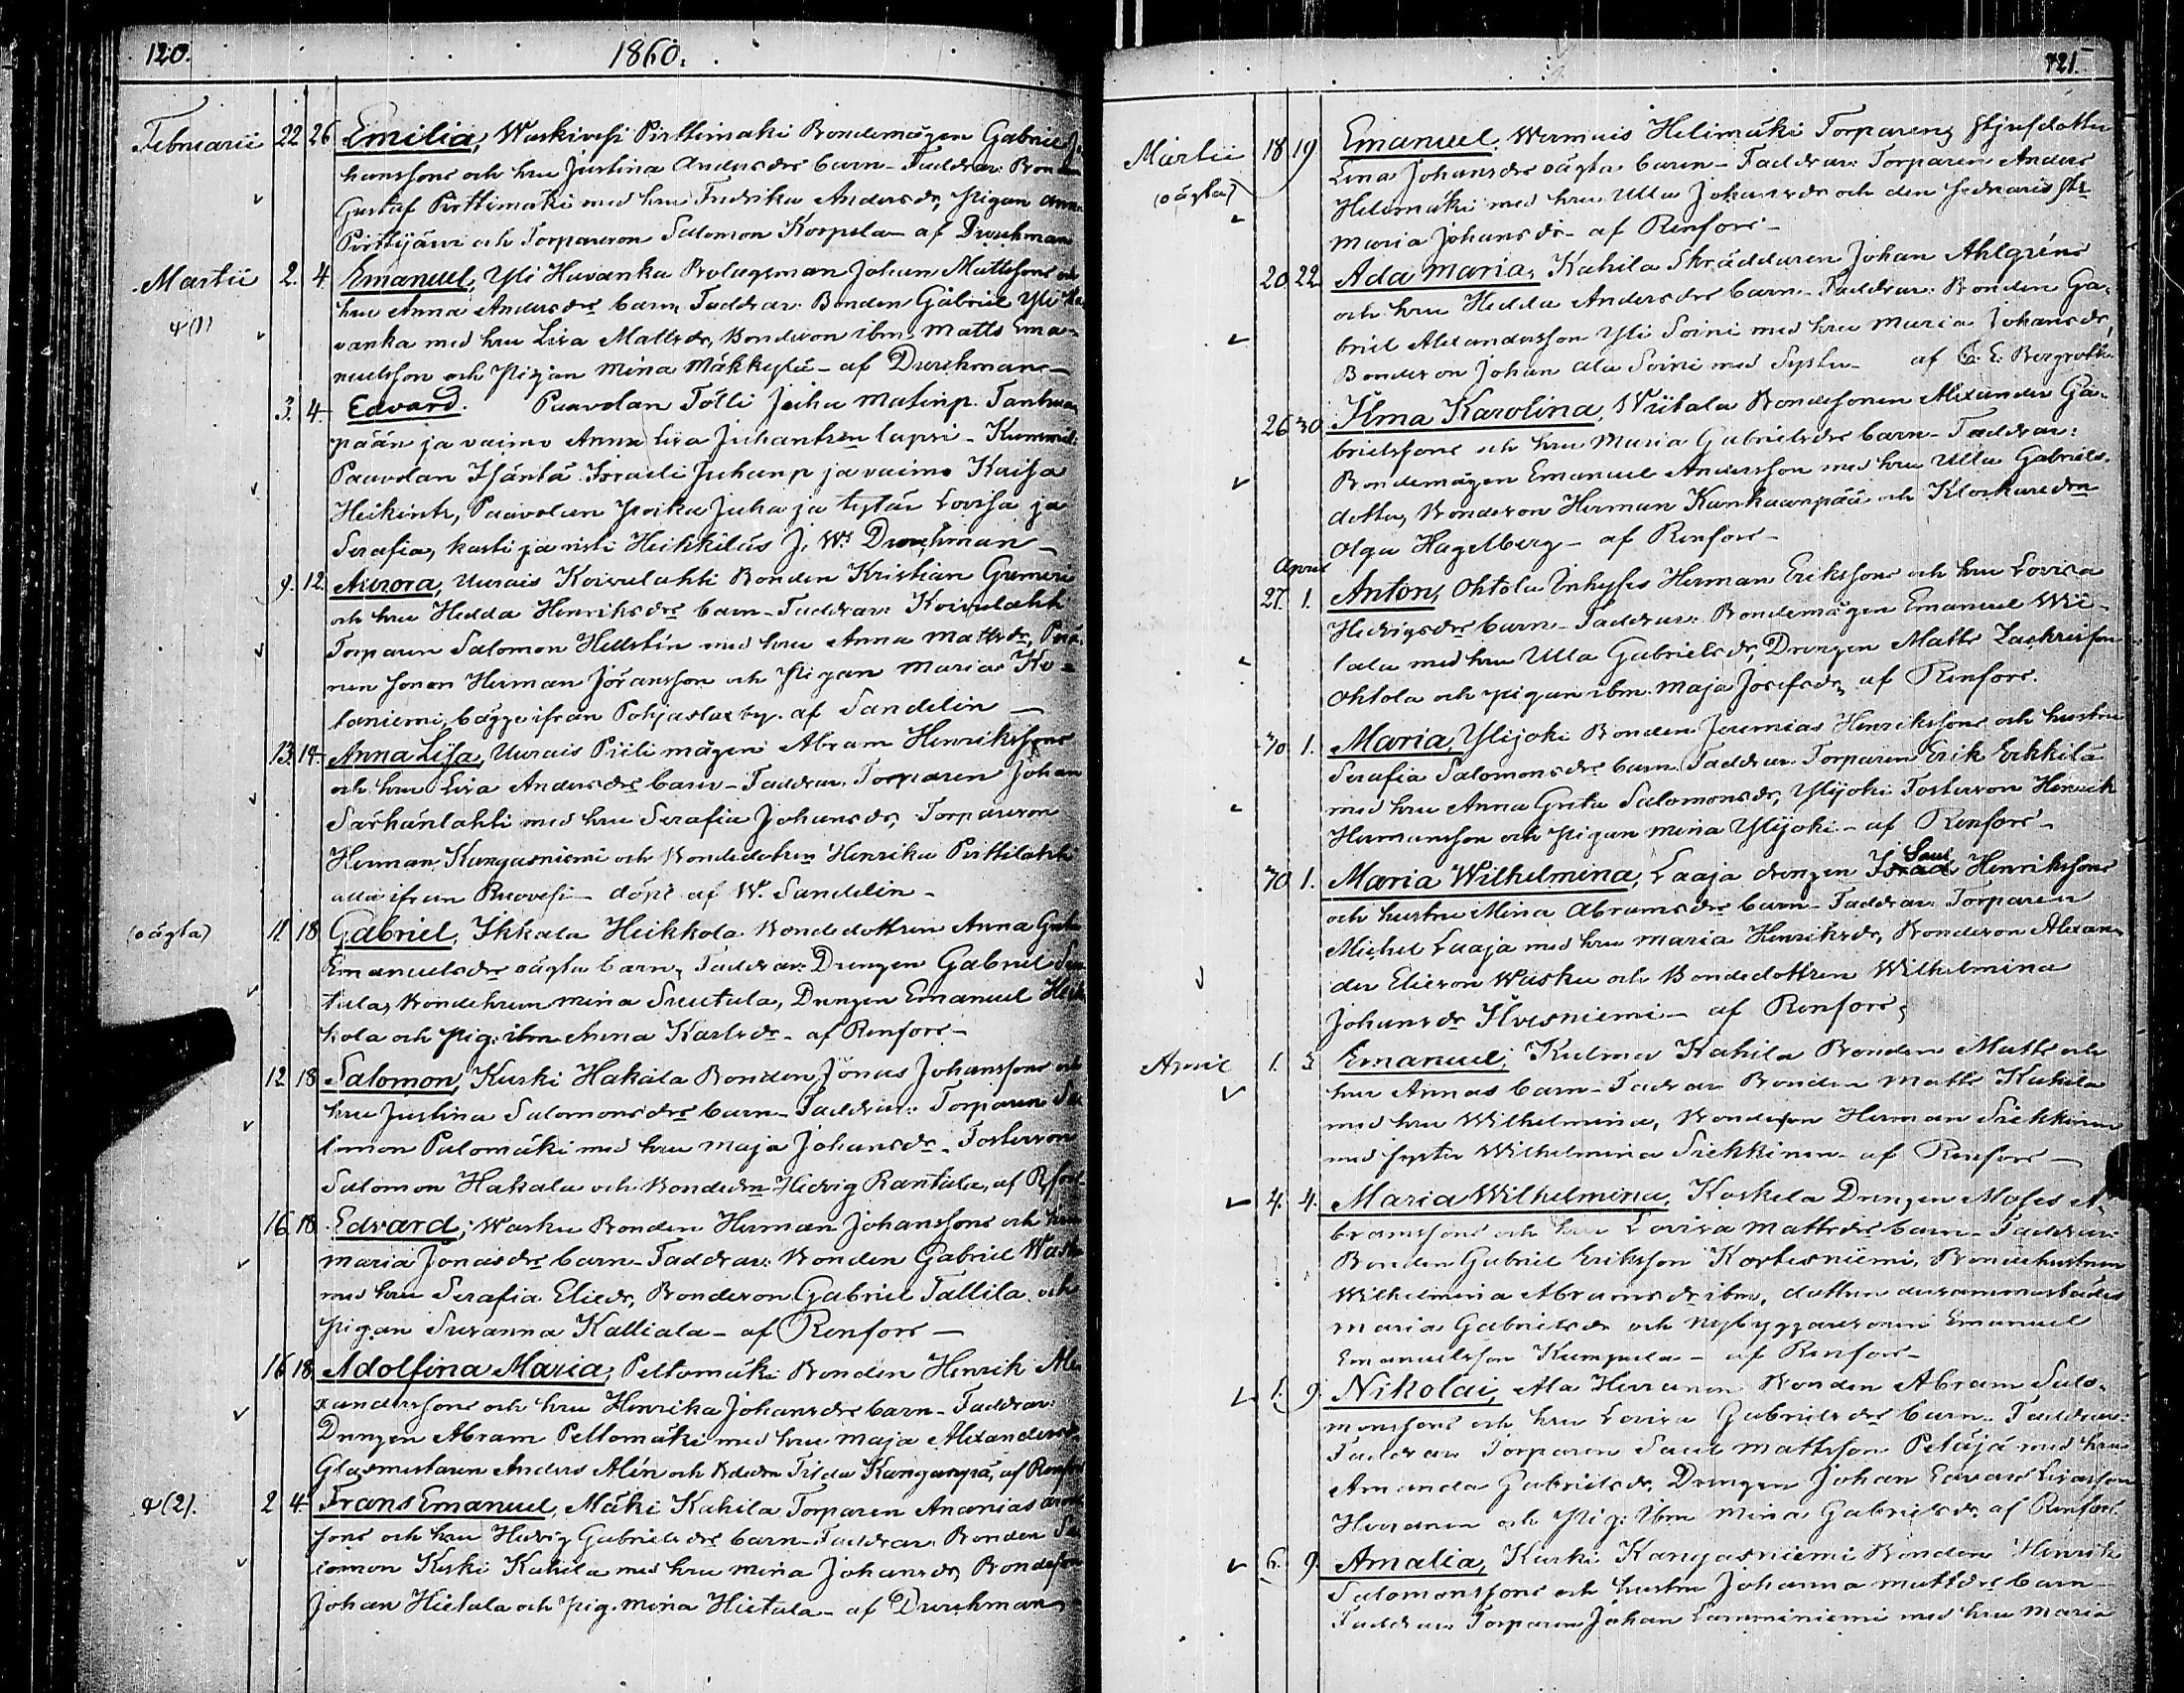 120. 1860.
Februarii 22 26 Emilia, Waskivesi Pirttimäki Bondemågen Gabriel Jo-
hanssons och hru Justina Andersdrs barn - Faddrar: Bonden
Gustaf Pirttimäki med hru Fredrika Andersdr, Pigan Anna
och Torpareson Salomon Korpela - af Durchman
Martii 2. 4. Emanuel, Yli Havanka Bolagsman Johan Mattssons och
hru Anna Andersdrs barn, Faddrar: Bonden Gabriel Yli Ha-
vanka med hru Lisa Mattsdr, Bondeson ibm Matts Ema-
nuelsson och Pigan Mina Mäkkylä - af Durchman -
3. 4. Edvard. Paavolan Tölli Juha Matinp.
pään ja vaimo Anna Lisa Juhantr:n lapsi - Kummit:
Paavolan Isäntä Israeli Juhanp ja vaimo Kaisa
Heikintr, Paavolan poika Juha ja tytär Lovisa ja
Serafia, kasti ja risti Heikkilüs J. W. Durchman -
9. 12. Aurora, Uurais Koivulahti Bonden Kristian Gumeri
och hru Hedda Henriksdrs barn - Faddrar: Koivulahti
Torparen Salomon Hellstén med hru Anna Mattsdr,
nen sonen Herman Jöransson och Pigan Maria
taniemi, bägge ifrån Pohjaslax by. af Sandelin -
13. 14. Anna Lisa, Uurais Piili mågen Abram Henrikssons
och hru Lisa Andersdrs barn - Faddrar: Torparen Johan
Särkänlahti med hru Serafia Johansdr, Torpareson
Herman Kangasniemi och Bondedottren Henrika Pirttilahti
alla ifrån Ruovesi - döpt af W. Sandelin -
(oägta) 11. 18. Gabriel, Ikkala Heikkola Bondedottren Anna Greta
Emanuelsdrs oägta barn, Faddrar: Drengen Gabriel
tula, Bondehrun Mina Suutala, Drengen Emanuel Heik-
kola och Pig: ibm Anna Karlsdr - af Renfors -
12 18 Salomon, Kurki Hakala Bonden Jonas Johanssons och
hru Justina Salomonsdrs barn - Faddrar: Torparen Sa-
lomon Palomäki med hru Maja Johansdr - Fosterson
Salomon Hakala och Bondedrn Hedvig Rantala, af Rfors
16 18. Edvard, Wasku Bonden Herman Johanssons och hru
Maria Jonasdrs barn - Faddrar: Bonden Gabriel Wasku
med hru Serafia Eliedr, Bondeson Gabriel Tallila och
Pigan Susanna Kalliala - af Renfors -
16 18. Adolfina Maria, Peltomäki Bonden Henrik Ale-
xanderssons och hru Henrika Johansdrs barn - Faddrar:
Drengen Abram Peltomäki med hru Maja Alexandersdr
Glasmestaren Anders Alén och Bdedrn Tilda Kanganpä, af Renfors
(2). 2 4. Frans Emanuel, Mäki Kahila Torparen Ananias
sons och hru Hedvig Gabrielsdrs barn - Faddrar: Bonden Sa-
lomon Keski Kahila med hru Mina Johansdr, Bondeson
Johan Hietala och Pig. Mina Hietala - af Durchman -
121.
Martii (oägta) 18 19 Emanuel, Wermais Helimäki Torparens styfdotter
Lena Johansdrs oägta barn - Faddrar: Torparen Anders
Helimäki med hru Ulla Johansdr och den
Maria Johansdr - af Renfors -
20. 22. Ada Maria, Kahila Skräddaren Johan Ahlgréns
och hru Hedda Andersdrs barn - Faddrar: Bonden Ga-
briel Alexandersson Yli Soini med hru Maria Johansdr,
Bondeson Johan Ala Soini med Syster - af C. E. Bergroth
26 30. Ilma Karolina, Wiitala Bondesonen Alexander Ga-
brielssons och hru Maria Gabrielsdrs barn - Faddrar:
Bondemågen Emanuel Andersson med hru Ulla Gabriels-
dotter, Bondeson Herman Kankaanpää och Klockaredrn
Olga Hagelberg - af Renfors -
April
27. 1. Anton, Ohtola Inhyses Herman Erikssons och hru Lovisa
Hedvigsdrs barn - Faddrar: Bondemågen Emanuel Wii-
tala med hru Ulla Gabrielsdr, Drengen Matts Zachrisson
Ohtola och pigan ibm. Maja Josefsdr, af Renfors.
30 1. Maria, Ylijoki Bonden Jeremias Henrikssons och hustru
Serafia Salomonsdrs barn. Faddrar: Torparen Erik Erkkilä
med hru Anna Greta Salomonsdr, Ylijoki Fosterson Henrik
Hermansson och Pigan Mina Ylijoki - af Renfors -
30 1. Maria Wilhelmina, Laaja drengen Israel Saul Henrikssons
och hustru Mina Abramsdrs barn - Faddrar: Torparen
Michel Laaja med hru Maria Henriksdr, Bondeson Alexan-
der Elieson Wasku och Bondedottren Wilhelmina
Johansdr Ilvesniemi - af Renfors,
April 1. 3 Emanuel, Kulma Kahila Bonden Matts och
hru Annas barn - Fadrar Bonden Matts Kahila
med hru Wilhelmina, Bondeson Herman Siekkinen
med syster Wilhelmina Siekkinen - af Renfors -
4. 4. Maria Wilhelmina, Koskela Drengen Moses A-
bramssons och hru Lovisa Mattsdrs barn - Faddrar:
Bonden Gabriel Eriksson Kortesniemi, Bondehustrun
Wilhelmina Abramsdr ibm, dottren dersammastädes
Maria Gabrielsdr och nybyggaresonen Emanuel
Emanuelsson Kumpula - af Renfors -
1. 9. Nikolai, Ala Herranen Bonden Abram Salo-
monssons och hru Lovisa Gabrielsdrs barn. Faddrar:
Faddrar Torparen Saul Mattsson Petäjä med hru
Amanda Gabrielsdr, Drengen Johan Edvard
Herranen och Pig: ibm Mina Gabrielsdr af Renfors.
6. 9. Amalia, Kurki Kangasniemi Bonden Henrik
Salomonssons och hustru Johanna Mattsdrs barn -
Faddrar Torparen Johan Lamminiemi med hru Maria